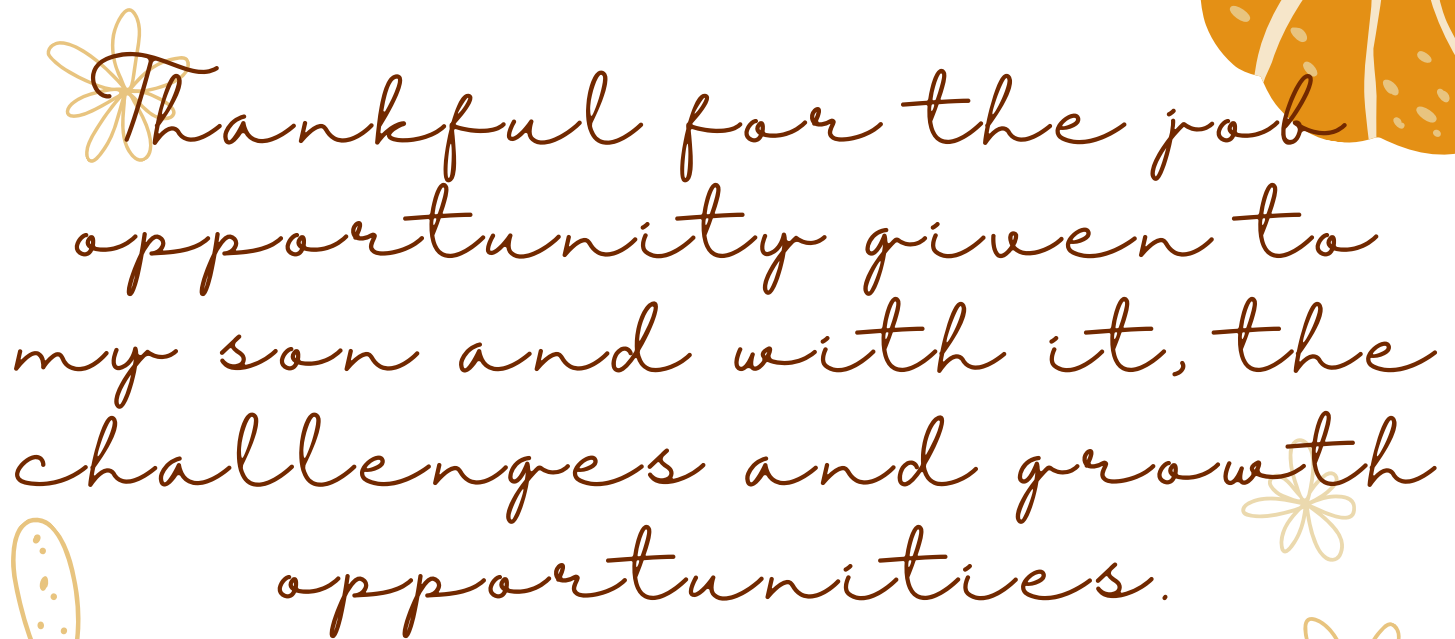 Thankful for the job
opportunity given to
my son and with it, the
challenges and growth
opportunities.